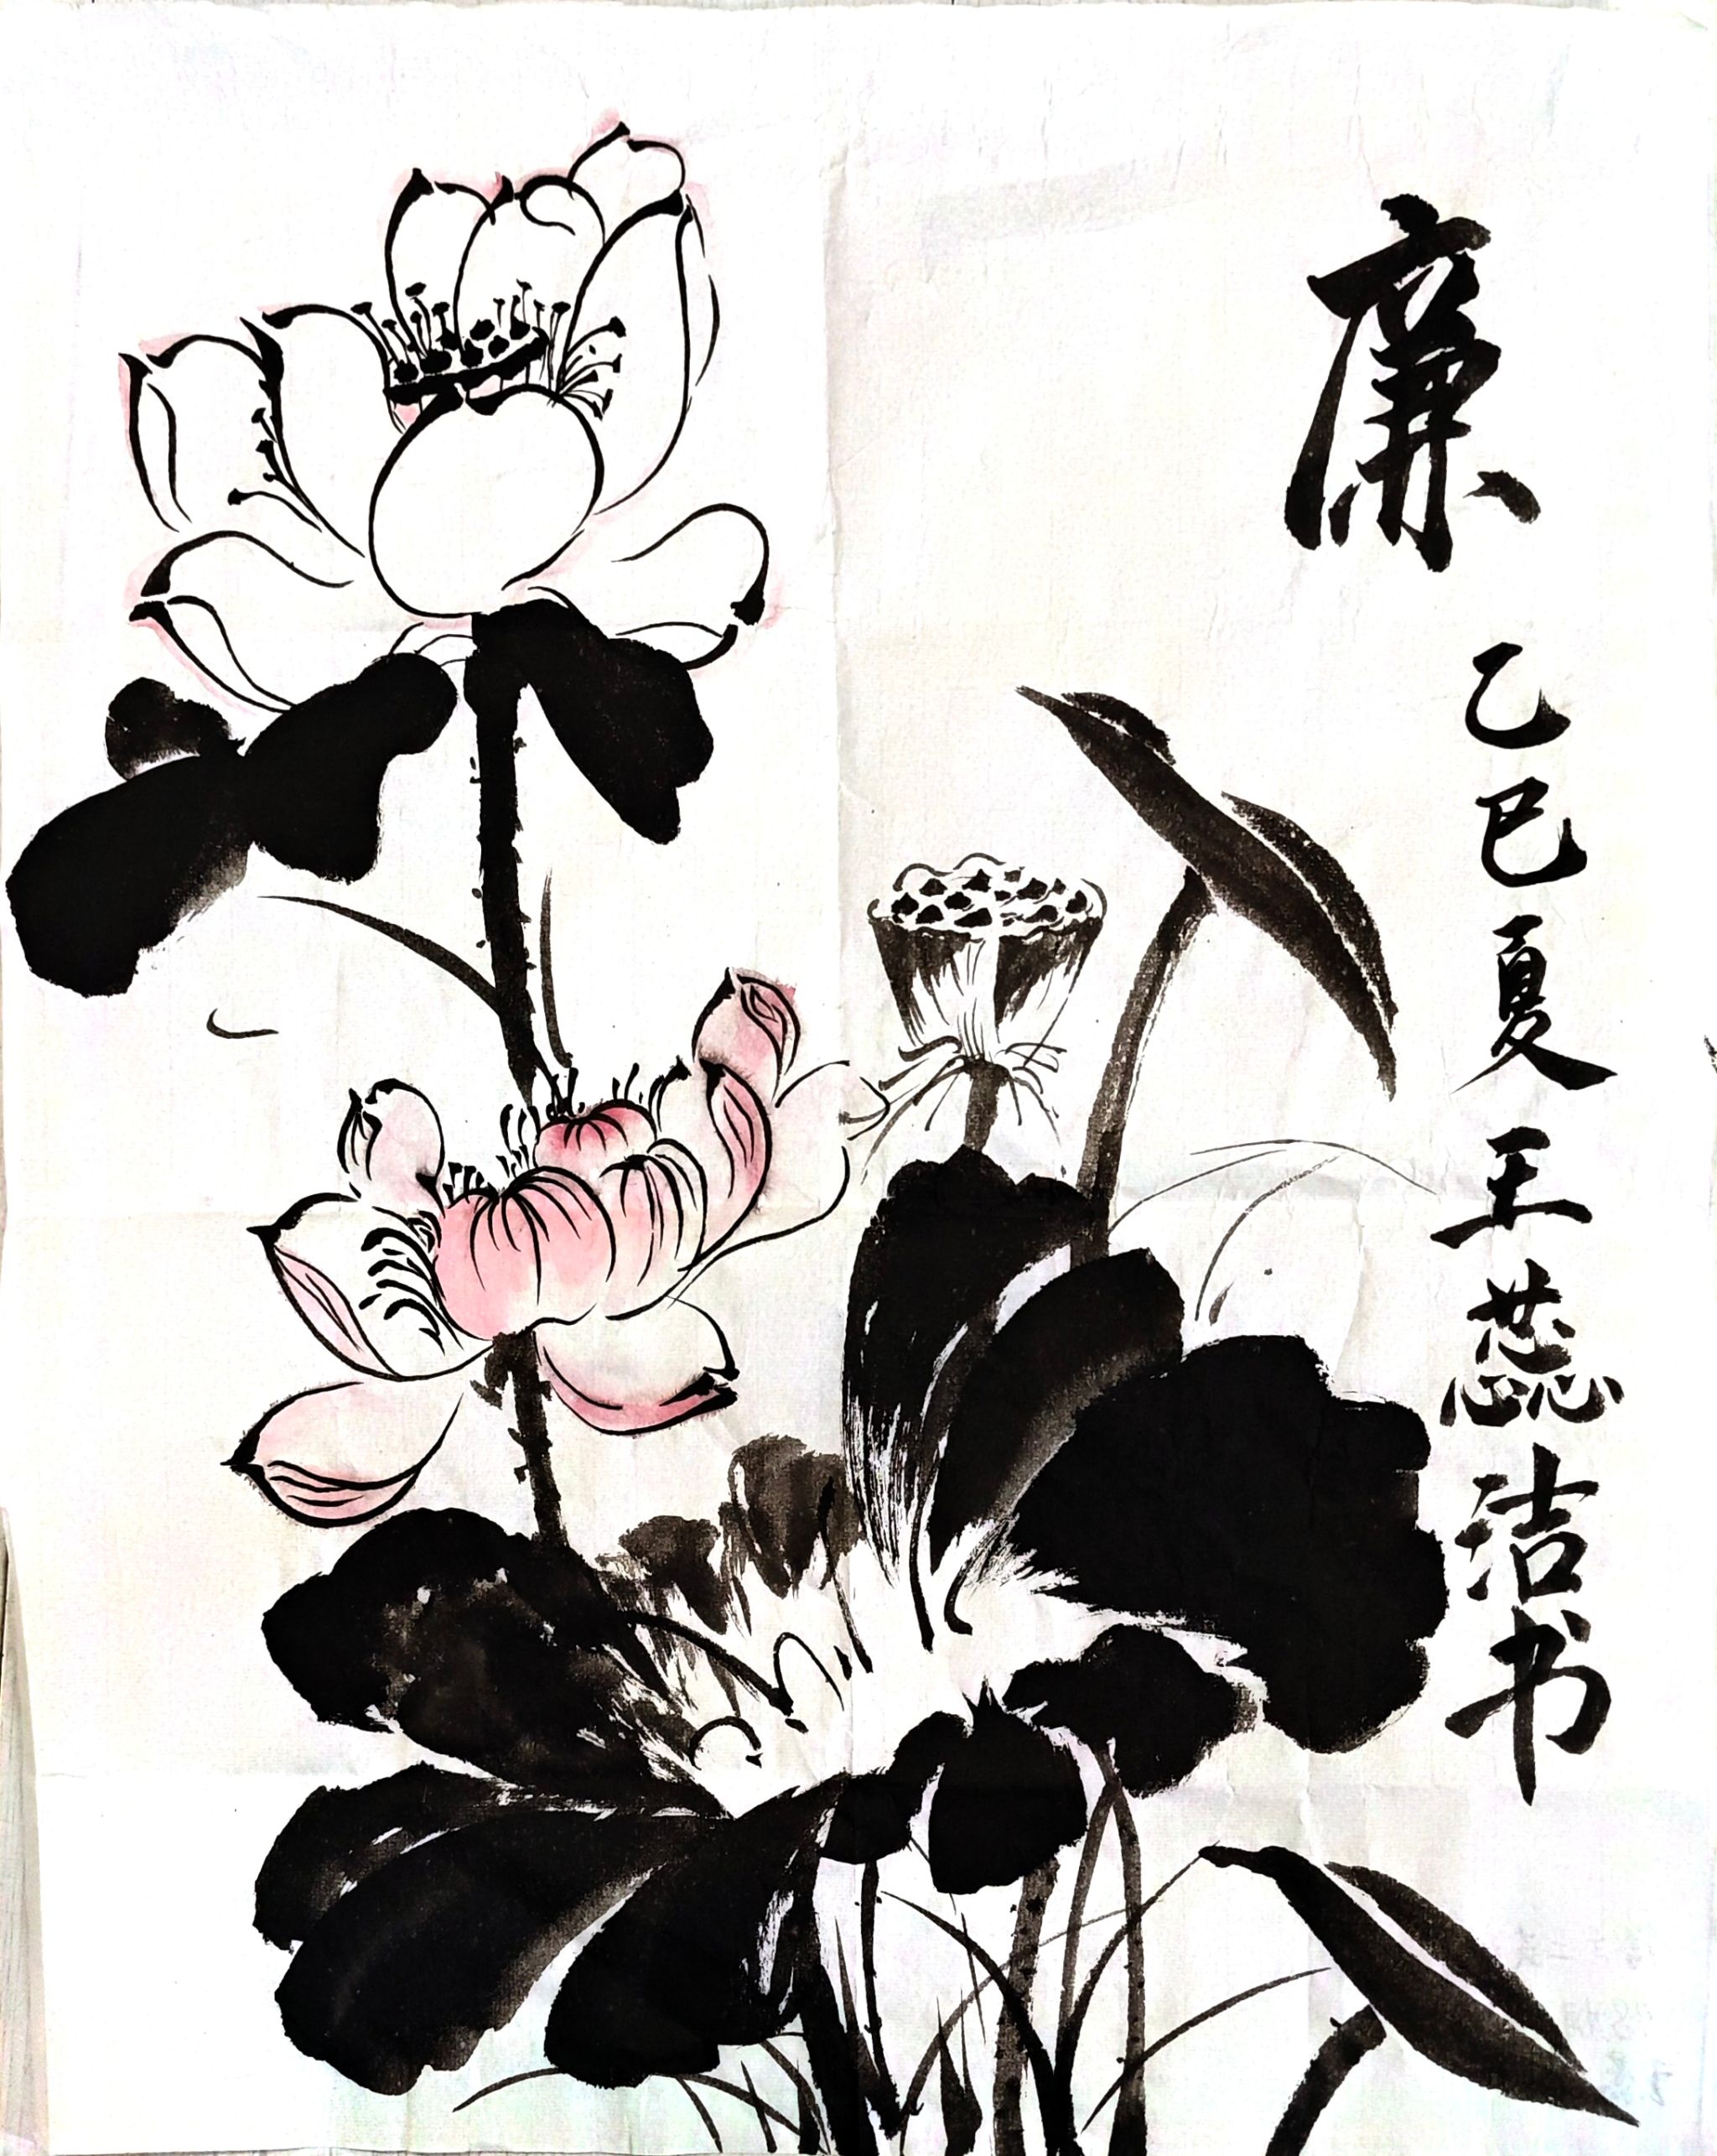 廉
乙巳夏王蕊洁书